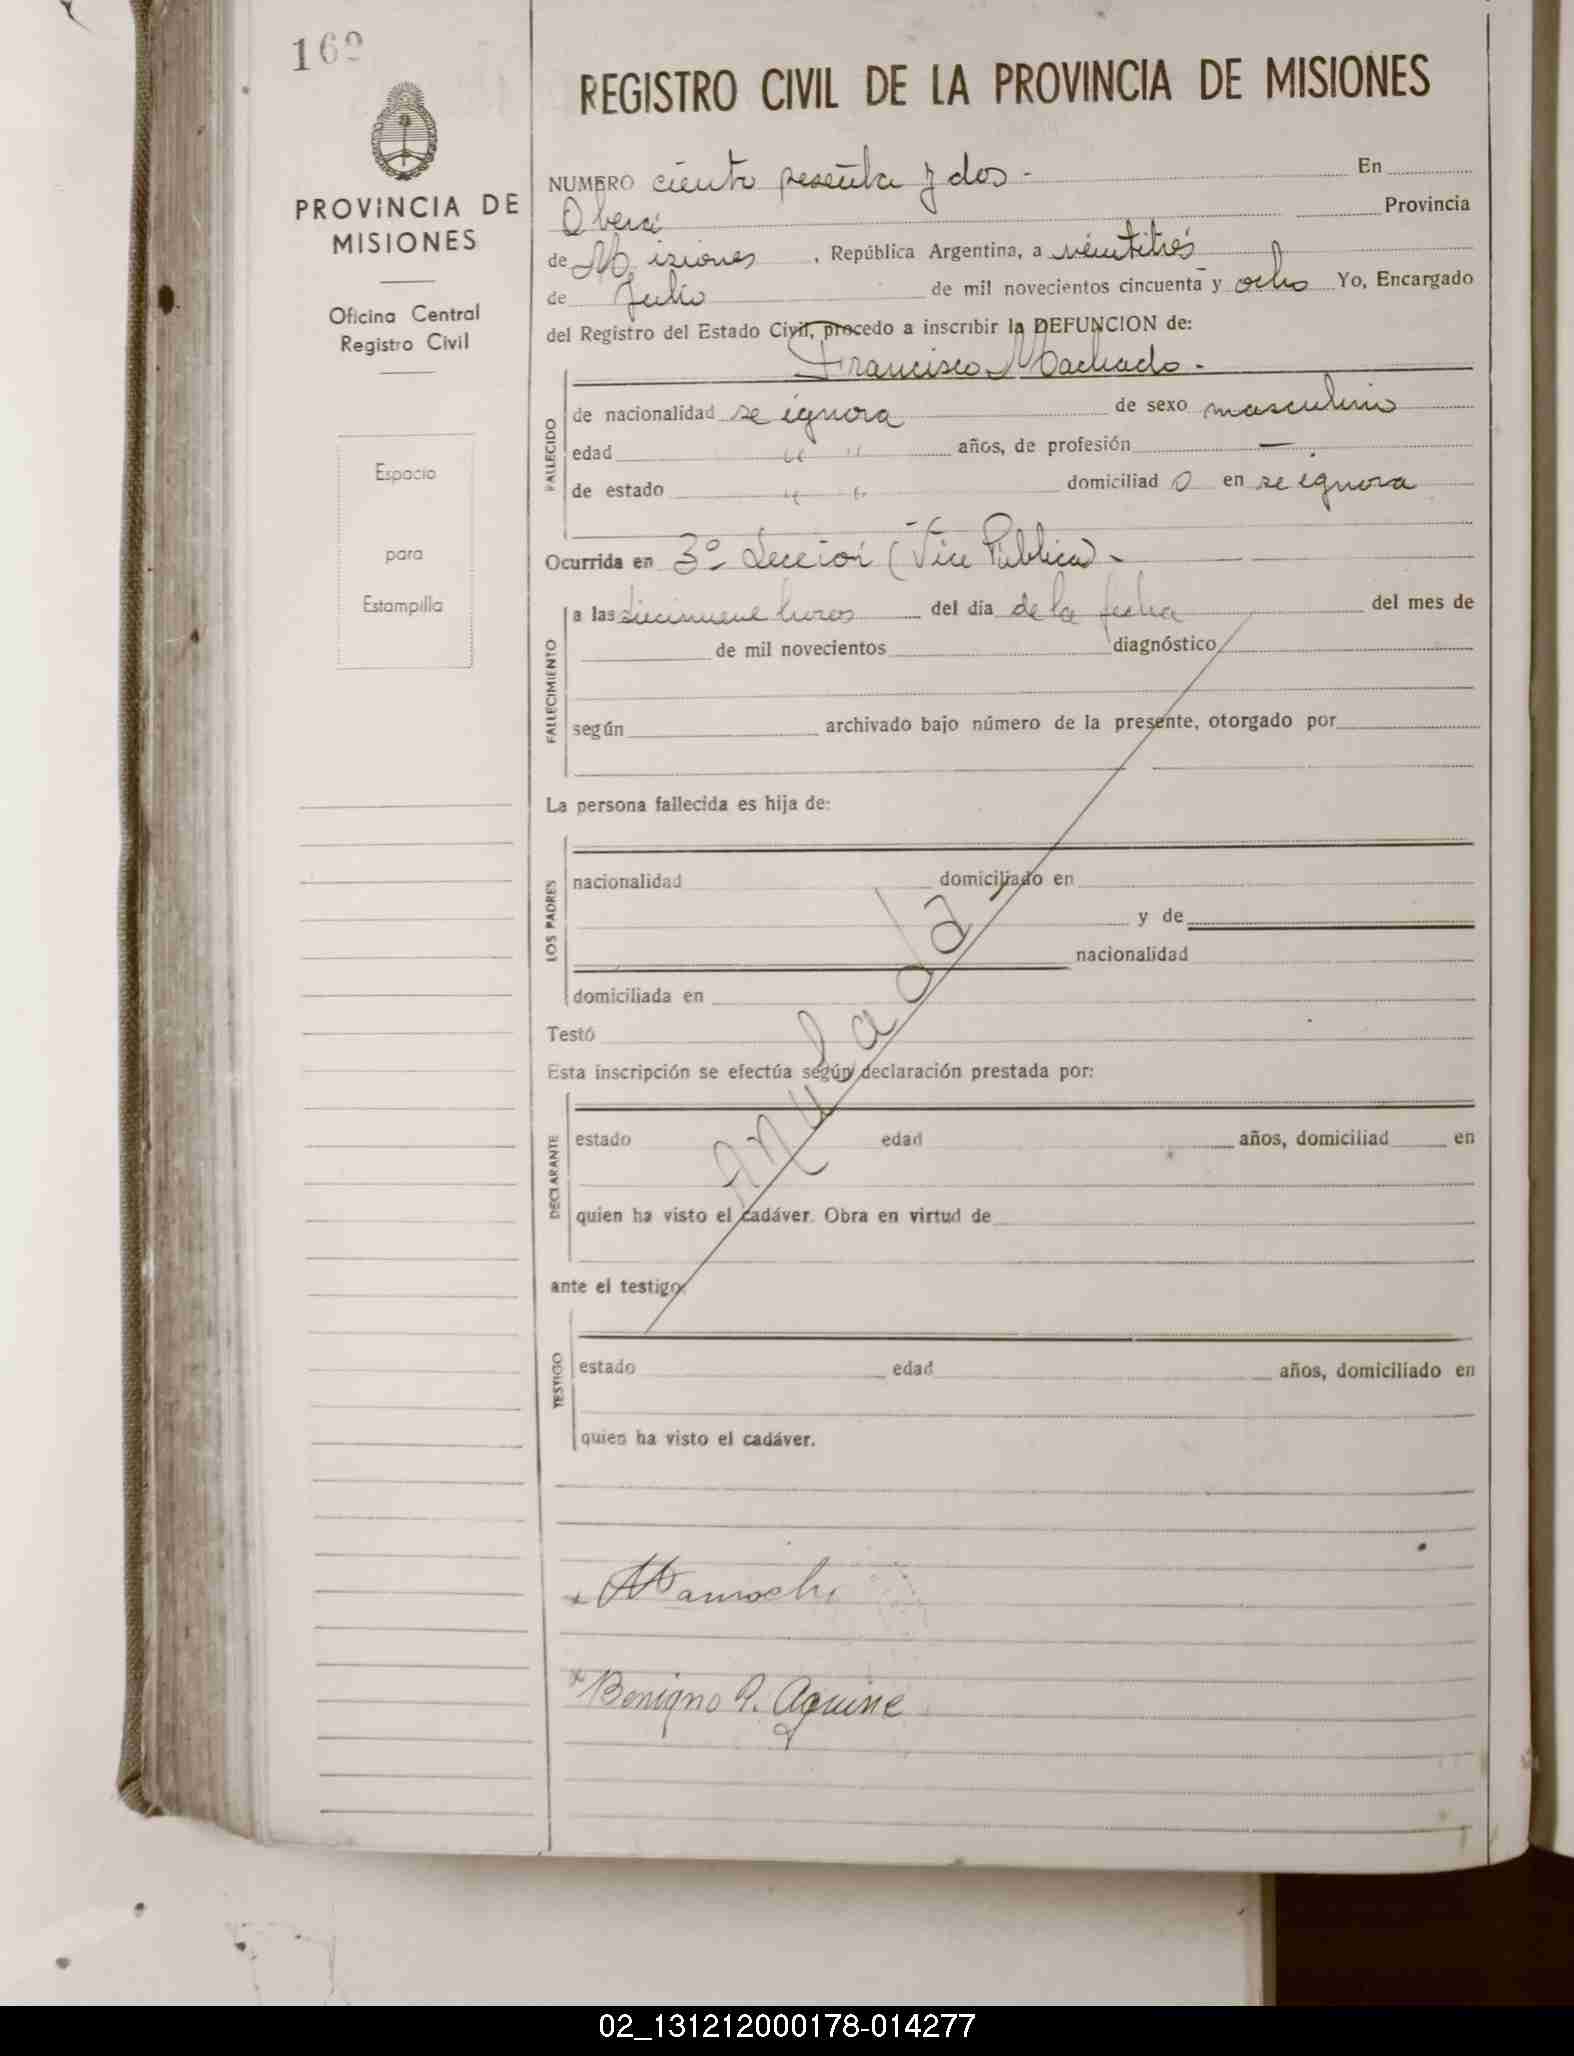 162
PROVINCIA DE
MISIONES
Oficina Central
Registro Civil
Espacio
para
Estampilla
REGISTRO CIVIL DE LA PROVINCIA DE MISIONES
NUMERO ciento sesenta y dos - En
Oberá Provincia
de Misiones , República Argentina, a veintitrés
de Julio de mil novecientos cincuenta y ocho Yo, Encargado
del Registro del Estado Civil, procedo a inscribir la DEFUNCION de:
Francisco Machado.-
FALLECIDO
de nacionalidad se ignora de sexo masculino
edad " " años, de profesión —
de estado " " domiciliad o en se ignora
Ocurrida en 3º Sección (Vía Pública) -
FALLECIMIENTO
a las diecinueve horas del día de la fecha del mes de
de mil novecientos diagnóstico
según archivado bajo número de la presente, otorgado por
La persona fallecida es hija de:
LOS PADRES
nacionalidad domiciliado en
y de
nacionalidad
domiciliada en
Testó
Anulada-
Esta inscripción se efectúa según declaración prestada por:
DECLARANTE
estado edad años, domiciliad en
quien ha visto el cadáver. Obra en virtud de
ante el testigo:
TESTIGO
estado edad años, domiciliado en
quien ha visto el cadáver.
Benigno A. Aguirre
02_131212000178-014277